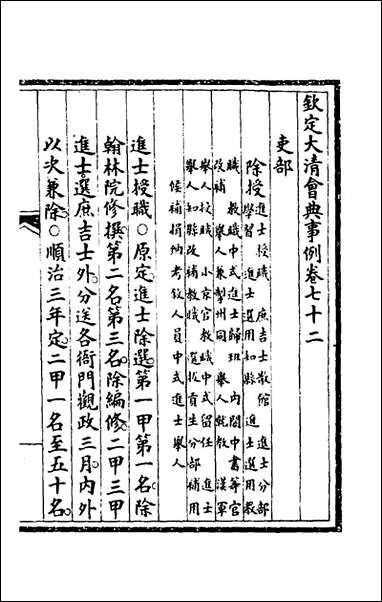 欽定大清會典事例卷七十二
吏部
除授進士授職 庶吉士散館 進士分部
學習 進士選用知縣 進士選用教
職 教職中式進士歸班 內閣中書等官
改補 舉人兼掣州同 舉人就教 漢軍
舉人授職 小京官教職中式留任 進士
舉人知縣改補教職 選拔貢生分部補用
候補捐納考效人員中式進士舉人
進士授職○原定進士除選第一甲第一名除
翰林院修撰第二名第三名除編修二甲三甲
進士選庶吉士外分送各衙門觀政三月內外
以次兼除○順治三年定二甲一名至五十名